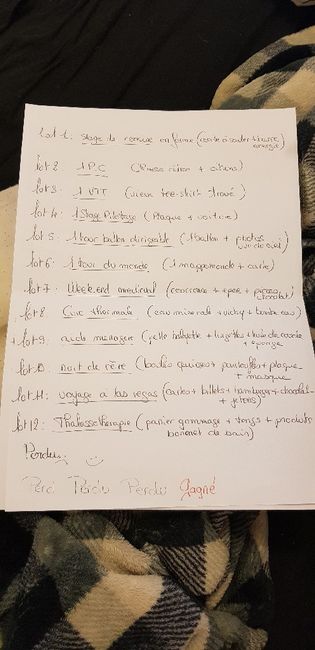 lot 1: stage de remise en forme (corde à sauter +
lot 2: 1 P.C
lot 3: 1 VTT (vieux tee-shirt troué)
lot 4: 1 Stage Pilotage (Plaque + voiture)
lot 5: 1 tour ballon dirigeable (1 ballon + photos
lot 6: 1 tour du monde (1 mappemonde + carte)
lot 7: Week-end médiéval (couronne + épée +
chocolat)
lot 8 Cure thermale (eau minérale + vichy +
+ lot 9: aide ménagère (pelle balayette + lingettes +
+ éponge
lot 10: nuit de rêve (boules quiès + pantoufles + plaque
+ masque
lot 11: voyage à las vegas (cartes + billets + hamburger + chocolat
+ jetons)
lot 12: Thalassothérapie (panier gommage + tongs + produits
bonnet de bain)
Perdu
Perdu Perdu Gagné